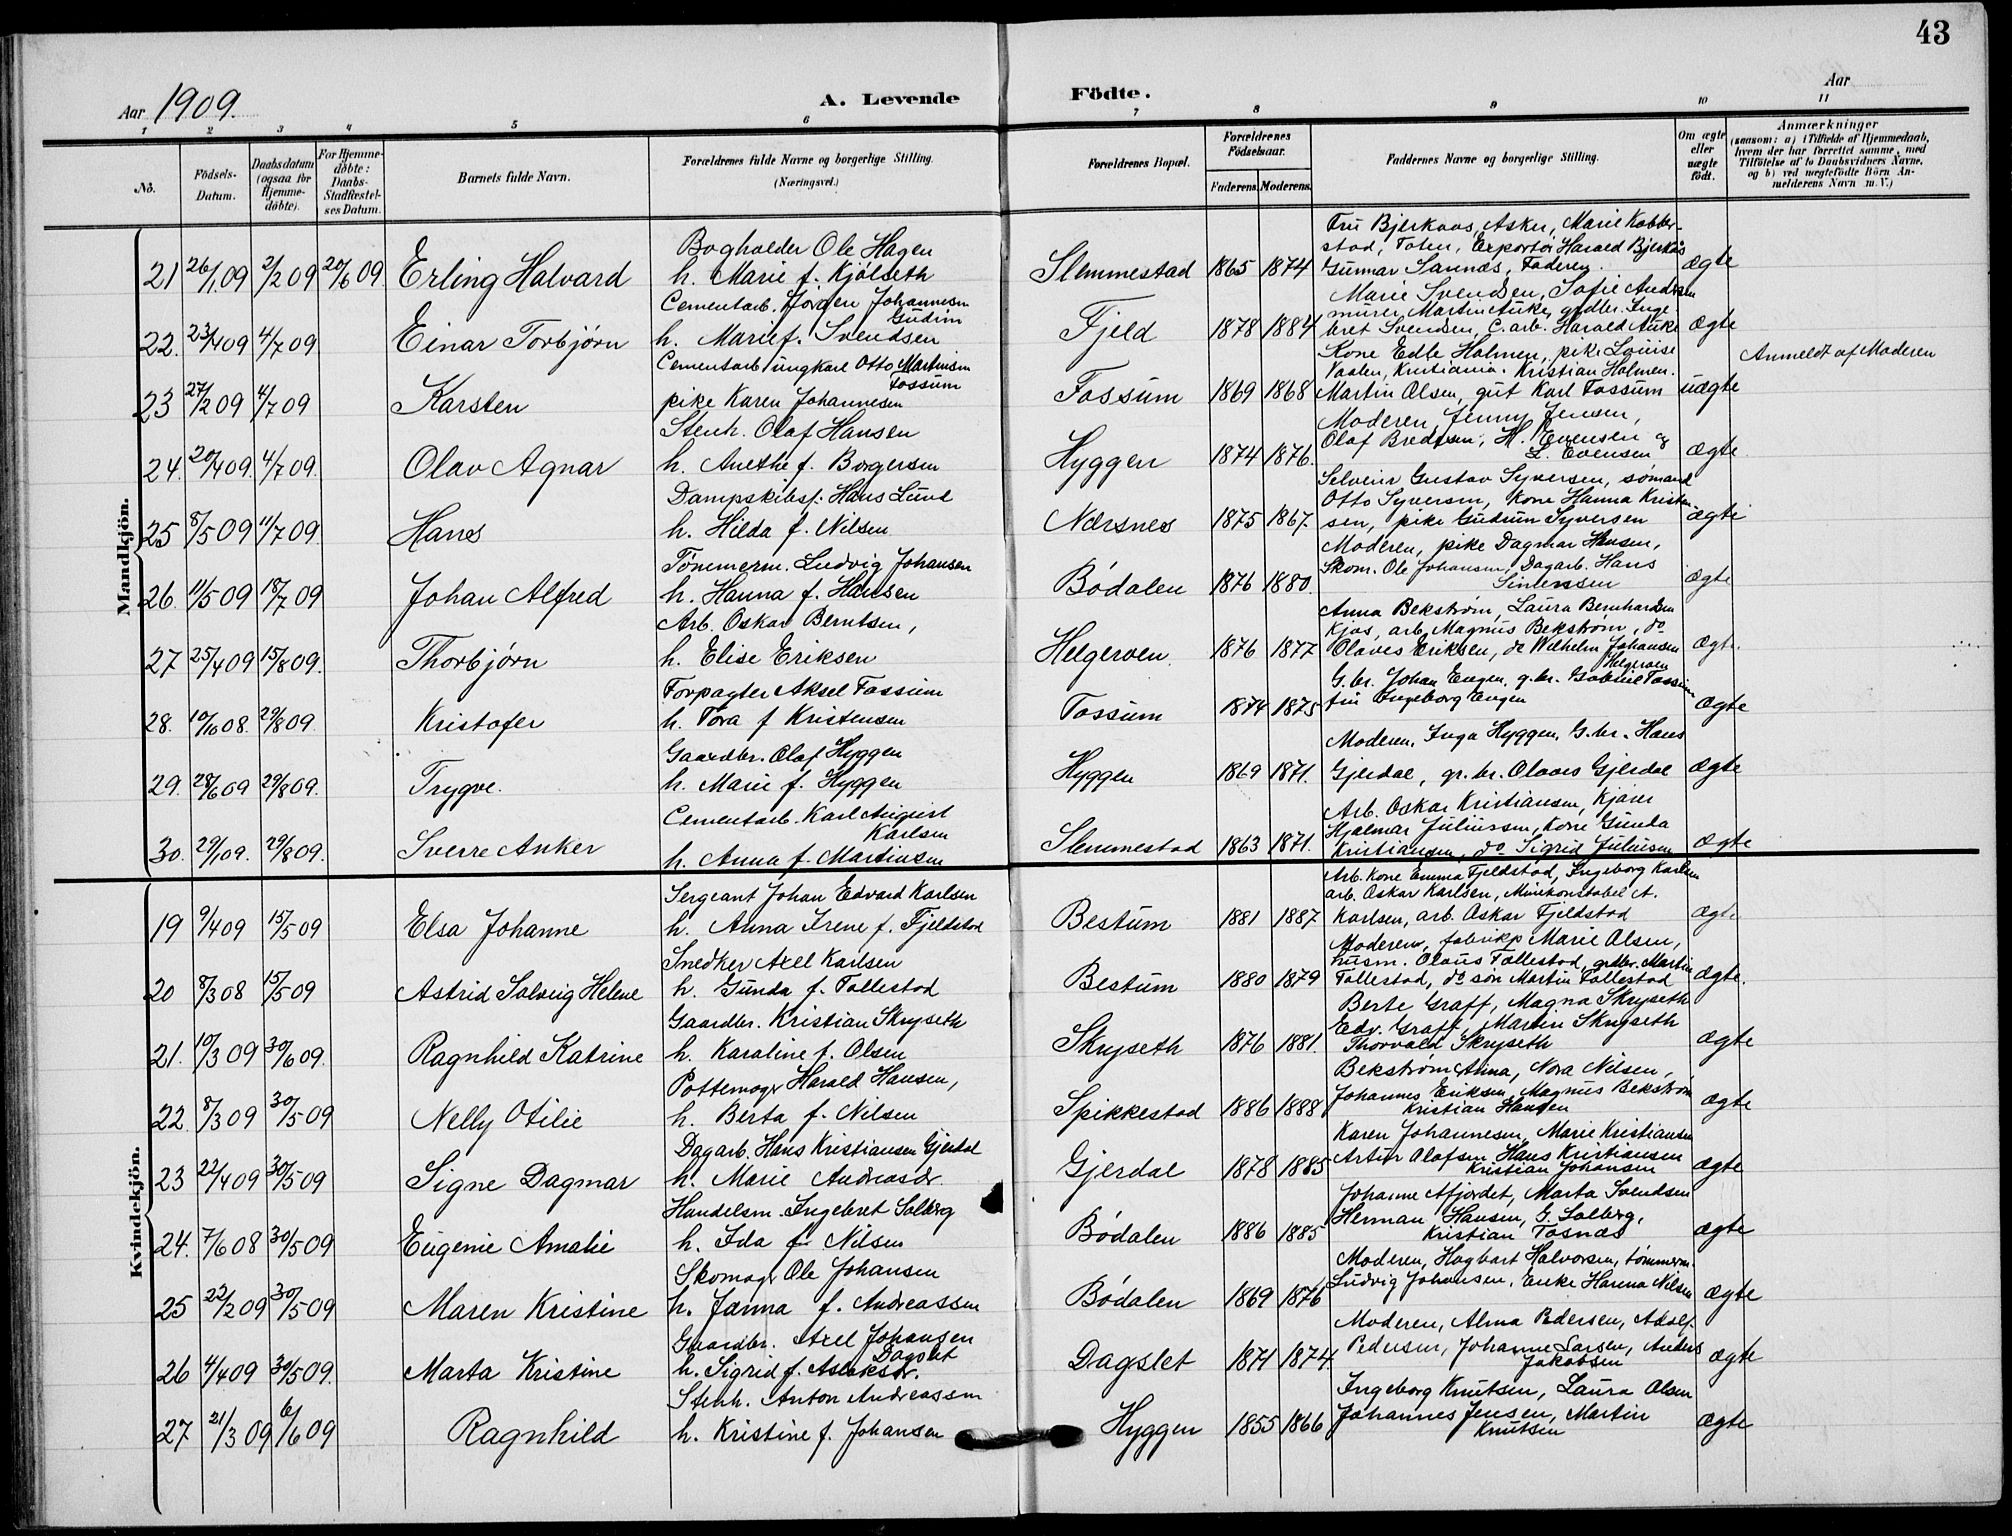 43
Aar 1909.
A. Levende Födte.
Aar
1 2 3 4 5 6 7 8 9 10 11
No.
Födsels-Datum.
Daabsdatum (ogsaa for Hjemme-döbte).
For Hjemme-döbte: Daabs-Stadfæstel-ses Datum.
Barnets fulde Navn.
Forældrenes fulde Navne og borgerlige Stilling. (Næringsvei.)
Forældrenes Bopæl.
Forældrenes Födselsaar.
Faderens. Moderens.
Faddernes Navne og borgerlige Stilling.
Om ægte eller uægte födt.
Anmærkninger
(saasom: a) i Tilfælde af Hjemmedaab, hvem der har forrettet samme, med Tilföielse af to Daabsvidners Navne, og b) ved uægtefödte Börn An-melderens Navn m. V.)
Mandkjön.
21 26/1 09 2/2 09 20/6 09 Erling Halvard
Bogholder Ole Hagen
h. Marie f. Kjölseth
Slemmestad 1865 1874
Fru Bjerkaas, Asker, Marie Kobber-
stad, Toten, Exportör Harald Bjerkås
Gunnar Sannæs, Faderen.
ægte
22. 23/4 09 4/7 09 Einar Torbjørn
Cementarb. Jørgen Johannesen
Gudim
h. Marie f. Svendsen
Fjeld 1878 1884
Marie Svendsen, Sofie Andersen
murer Martin Auke, gdbr. Inge
bret Svendsen, C. arb. Harald Auke
ægte
23 27/2 09 4/7 09 Karsten
Cementarb ungkarl Otto Martinsen
Fossum
pike Karen Johannesen
Fossum 1869 1868
Kone Edle Holmen, pike Louise
Vaalen, Kristiania. Kristian Holmen.
Martin Olsen, gut Karl Fossum
uægte
Anmeldt af Moderen
24. 20/4 09. 4/7 09. Olav Agnar
Stenh. Olaf Hansen
h. Anethe f. Borgersen
Hyggen 1874 1876.
Moderen, Jenny Jensen,
Olaf Bredesen, H. Evensen og
L. Evensen
ægte
25 8/5 09 11/7 09 Hans
Dampskibsf. Hans Lund
h. Hilda f. Nilsen
Nærsnes 1875 1867.
Selveier Gustav Syversen, sømand
Otto Syversen, kone Hanna Kristen
sen, pike Gudrun Syversen
ægte
26 11/5 09 18/7 09 Johan Alfred
Tömmerm. Ludvig Johansen
h. Hanna f. Hansen
Bødalen 1876 1880.
Moderen, pike Dagmar Hansen,
Skom. Ole Johansen, Dagarb. Hans
ægte
27 25/4 09 15/8 09. Thorbjørn
Arb. Oskar Berntsen,
h. Elise Eriksen
Helgerven 1876 1877
Anna Bekstrøm, Laura Bernhardsen
Kjos, arb. Magnus Bekstrøm, do
Olaves Eriksen, do Wilhelm Johansen
Helgerven
ægte
28. 10/10 08. 29/8 09. Kristofer
Forpagter Aksel Fossum
h. Tora f Kristensen
Fossum 1874 1875
G.br. Johan Engen, g.br. Gabriel Fossum
fru Ingeborg Engen
ægte
29. 28/6 09 29/8 09. Trygve.
Gaardbr. Olaf Hyggen
h. Marie f. Hyggen
Hyggen 1869 1871.
Moderen. Inga Hyggen, G.br. Hans
Gjerdal, gr.br. Olaves Gjerdal
ægte
30. 29/1 09. 29/8 09. Sverre Anker
Cementarb. Karl August
Karlsen
h. Anna f. Martinsen
Slemmestad 1863 1871.
Arb. Oskar Kristiansen, Kjører
Hjalmar Juliussen, Kone Gunda
Kristiansen, do Sigrid Juliusen
ægte
Kvindekjön.
19 9/4 09 15/5 09 Elsa Johanne
Sergeant Johan Edvard Karlsen
h. Anna Irene f. Fjeldstad
Bestum 1881 1887
Arb. Kone Emma Fjeldstad, Ingeborg Karlsen
arb. Oskar Karlsen, Minekonstabel A.
Karlsen, arb. Oskar Fjeldstad
ægte
20 8/3 08 15/5 09 Astrid Solveig Helene
Snedker Axel Karlsen
h. Gunda f. Follestad
Bestum 1880 1879
Moderen, fabrikp Marie Olsen,
husm. Olaus Follestad, grdbr. Martin
Follestad, do søn Martin Follestad
ægte.
21. 10/3 09 30/6 09. Ragnhild Katrine
Gaardbr. Kristian Skryseth
h. Karoline f. Olsen
Skryseth 1876 1881.
Berte Graff, Magna Skryseth
Edv. Graff, Martin Skryseth
Thorvald Skryseth
ægte
22 8/3 09 30/5 09 Nelly Otilie
Pottemagr Harald Hansen,
h. Berta f. Nilsen
Spikkestad 1886 1888
Bekstrøm Anna, Nora Nilsen,
Johannes Eriksen, Magnus Bekstrøm
Kristian Hansen
ægte
23 22/4 09 30/5 09 Signe Dagmar
Dagarb. Hans Kristiansen Gjerdal
h. Marie Andreasdr.
Gjerdal 1878 1885
Karen Johannesen, Marie Kristiansen
Artur Olafsen Hans Kristiansen
Kristian Johansen
ægte
24. 7/6 08 30/5 09 Eugenie Amalie
Handelsm. Ingebret Solberg
h. Ida f. Nilsen
Bødalen 1886 1885
Johanne Afjordet, Marta Svendsen
Herman Hansen, G. Solberg,
Kristian Fosnæs
ægte
25 22/2 09 30/5 09 Maren Kristine
Skomagr Ole Johansen
h. Janna f. Andreassen
Bødalen 1869 1876
Moderen, Hagbart Halvorsen, tømmerm.
Ludvig Johansen, Enke Harena Nilsen
ægte
26 4/4 09 30/5 09. Marta Kristine
Gaardbr. Axel Johansen
Dagslet
h. Sigrid f. Aslaksdr.
Dagslet 1871 1874.
Moderen, Alma Pedersen, Adolf.
Pedersen, Johanne Larsen, Anders
Jakobsen
ægte
27 21/3 09 6/6 09 Ragnhild
Stenh. Anton Andreassen
h. Kristine f. Johansen
Hyggen 1855 1866
Ingeborg Knutsen, Laura Olsen
Johannes Jensen, Martin
Knutsen
ægte